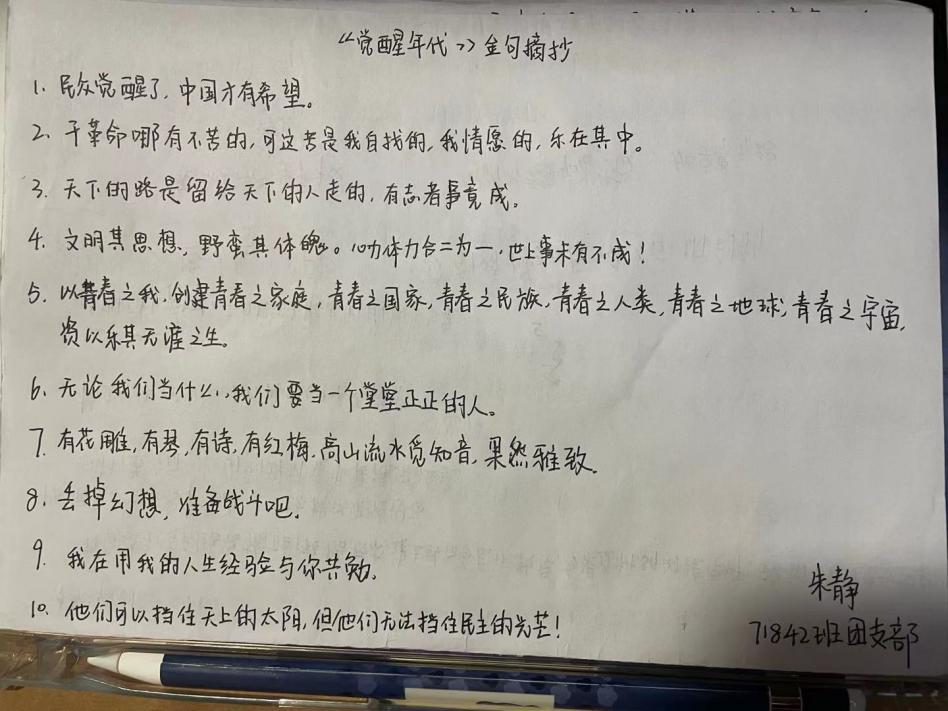 《觉醒年代》金句摘抄
1. 民众觉醒了，中国才有希望。
2. 干革命哪有不苦的，可这苦是我自找的，我情愿的，乐在其中。
3. 天下的路是留给天下的人走的，有志者事竟成。
4. 文明其思想，野蛮其体魄。心力体力合二为一，世上事未有不成！
5. 以青春之我，创建青春之家庭，青春之国家，青春之民族，青春之人类，青春之地球，青春之宇宙，
资以乐其无涯之生。
6. 无论我们当什么，我们要当一个堂堂正正的人。
7. 有花雕，有琴，有诗，有红梅，高山流水觅知音，果然雅致。
8. 丢掉幻想，准备战斗吧。
9. 我在用我的人生经验与你共勉。
10. 他们可以挡住天上的太阳，但他们无法挡住民主的光芒！
朱静
71842班团支部